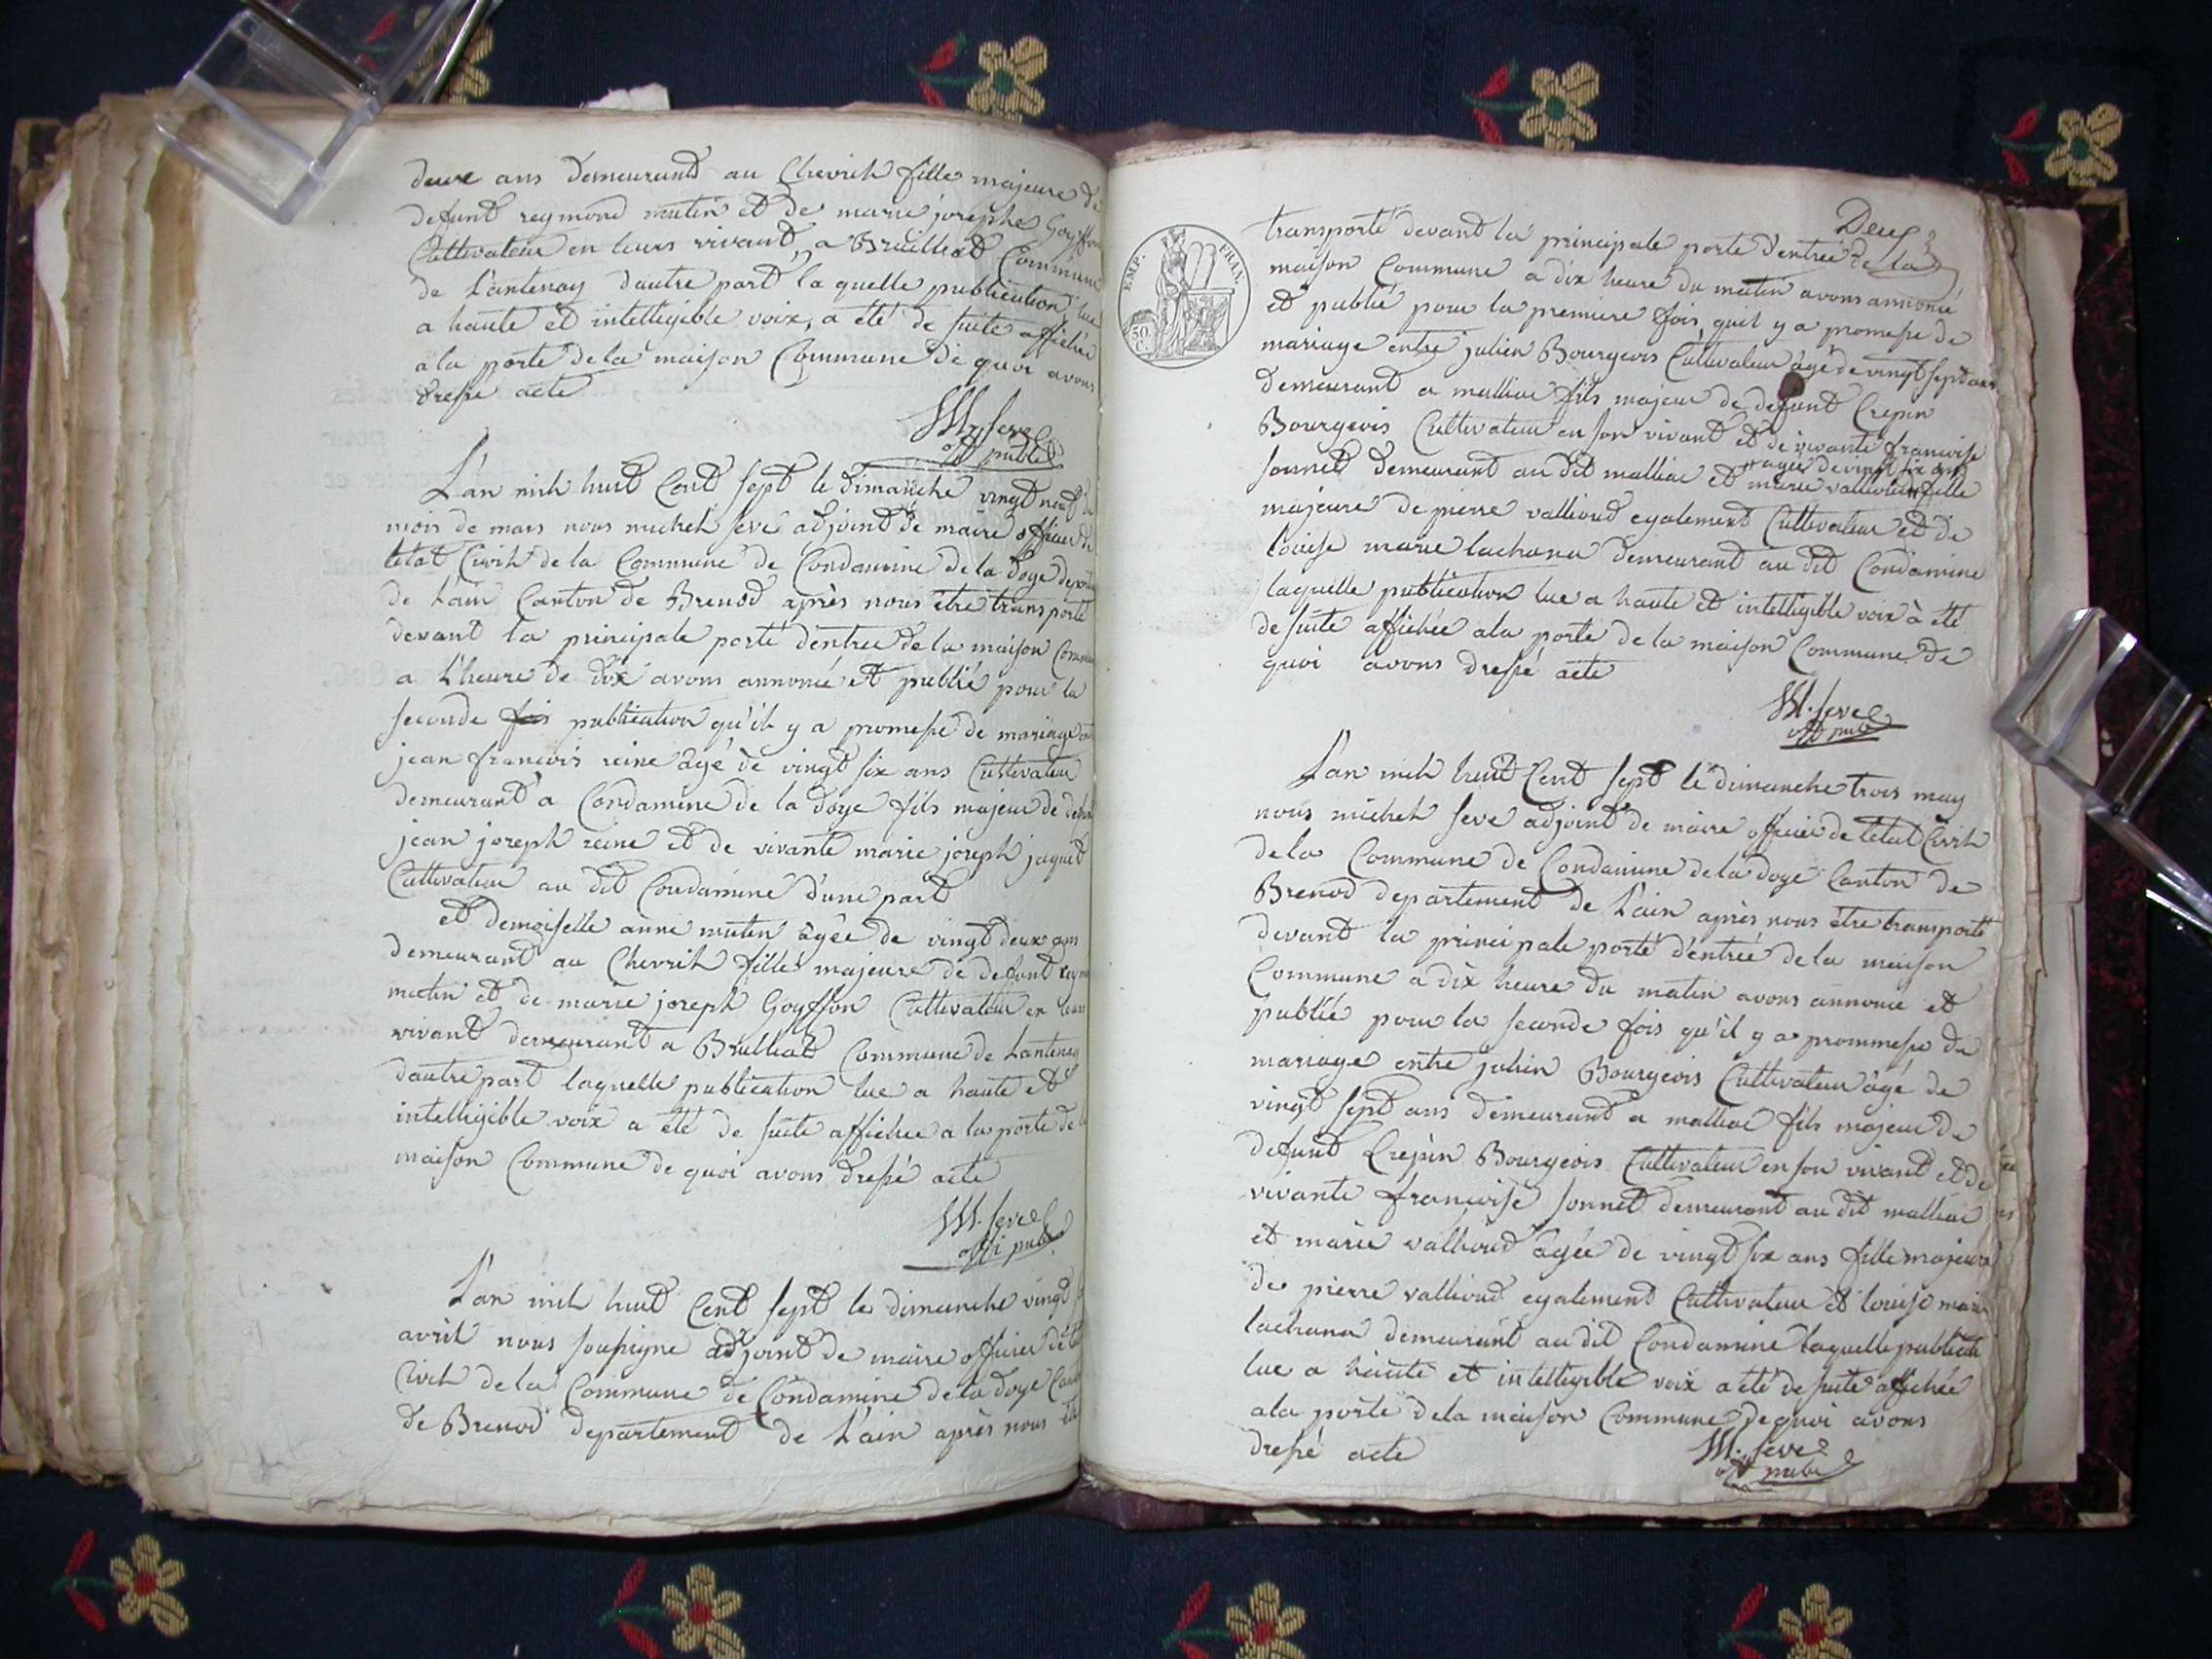 deux ans demeurand au Chevril fille majeure de
defunt reymond mutin et de marie josephe Goyffon
Cultivateur en leurs vivant a Brulliat Commune
de Lantenay dautre part la quelle publication lue
a haute et intelligible voix, a été de suite affichée
a la porte de la maison Commune de quoi avons
dressé acte
M. seve
off publ
L'an mil huit Cent sept le dimanche vingt neuf du
mois de mars nous michel seve adjoint de maire officier de
létat Civil de la Commune de Condamine de la doye
de Lain Canton de Brenod après nous être transporté
devant la principale porté d'entrée de la maison
a L'heure de dix avons annoncé et publié pour la
seconde fois publication qu'il y a promesse de mariage
jean francois reine âgé de vingt six ans Cultivateur
demeurant a Condamine de la doye fils majeur de
jean joseph reine et de vivante marie joseph jaquet
Cultivateur au dit Condamine d'une part
et demoiselle anne mutin âgée de vingt deux ans
demeurant au Chevril fille majeure de defunt
mutin et de marie joseph Goyffon Cultivateur en leurs
vivant demeurant a Brulliat Commune de Lantenay
dautre part laquelle publication lue a haute et
intelligible voix a été de suite affichée a la porte de
maison Commune de quoi avons dressé acte
M. seve
offi pub
L'an mil huit Cent sept le dimanche vingt
avril nous soussigné adjoint de maire officier
Civil de la Commune de Condamine de la doye
de Brenod departement de L'ain après nous
Deux
EMP. FRAN.
50 C.
transporté devant la principale porte d'entrée de la
maison Commune a dix heure du matin avons annoncé
et publié pour la premiere fois quil y a promesse de
mariage entre julien Bourgeois Cultivateur âgé de vingt sept ans
demeurant a malliac fils majeur de defunt Crepin
Bourgeois Cultivateur en son vivant et de vivante francoise
sonnet demeurant au dit malliac et marie vallioud fille
agée de vingt six ans
majeure de pierre vallioud egalement Cultivateur et de
louise marie lachana demeurant au dit Condamine
laquelle publication lue a haute et intelligible voix à été
de suite affichée a la porte de la maison Commune de
quoi avons dressé acte
M. seve
off pub
L'an mil huit Cent sept le dimanche trois may
nous michel seve adjoint de maire officier de létat Civil
de la Commune de Condamine de la doye Canton de
Brenod departement de L'ain après nous être transporté
devant la principale porté d'entrée de la maison
Commune a dix heure du matin avons annoncé et
publié pour la seconde fois qu'il y a prommesse de
mariage entre julien Bourgeois Cultivateur âgé de
vingt sept ans demeurant a malliac fils majeur de
defunt Crepin Bourgeois Cultivateur en son vivant et de
vivante francoise sonnet demeurant au dit malliac
et marie vallioud âgée de vingt six ans fille majeure
de pierre vallioud egalement Cultivateur et louise marie
lachana demeurant au dit Condamine laquelle
lue a haute et intelligible voix a été de suite affichée
a la porte de la maison Commune de quoi avons
dressé acte
M. seve
off pub